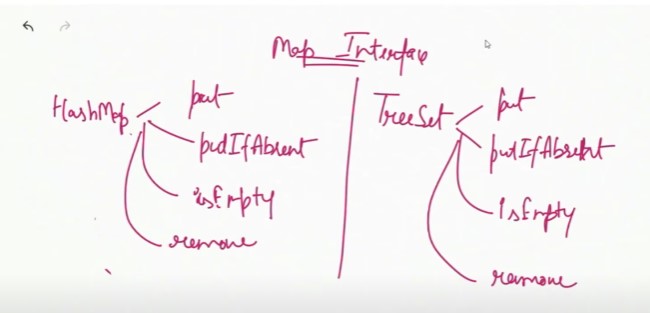 Map Interface
HashMap
put
putIfAbsent
isEmpty
remove
TreeSet
put
putIfAbsent
IsEmpty
remove